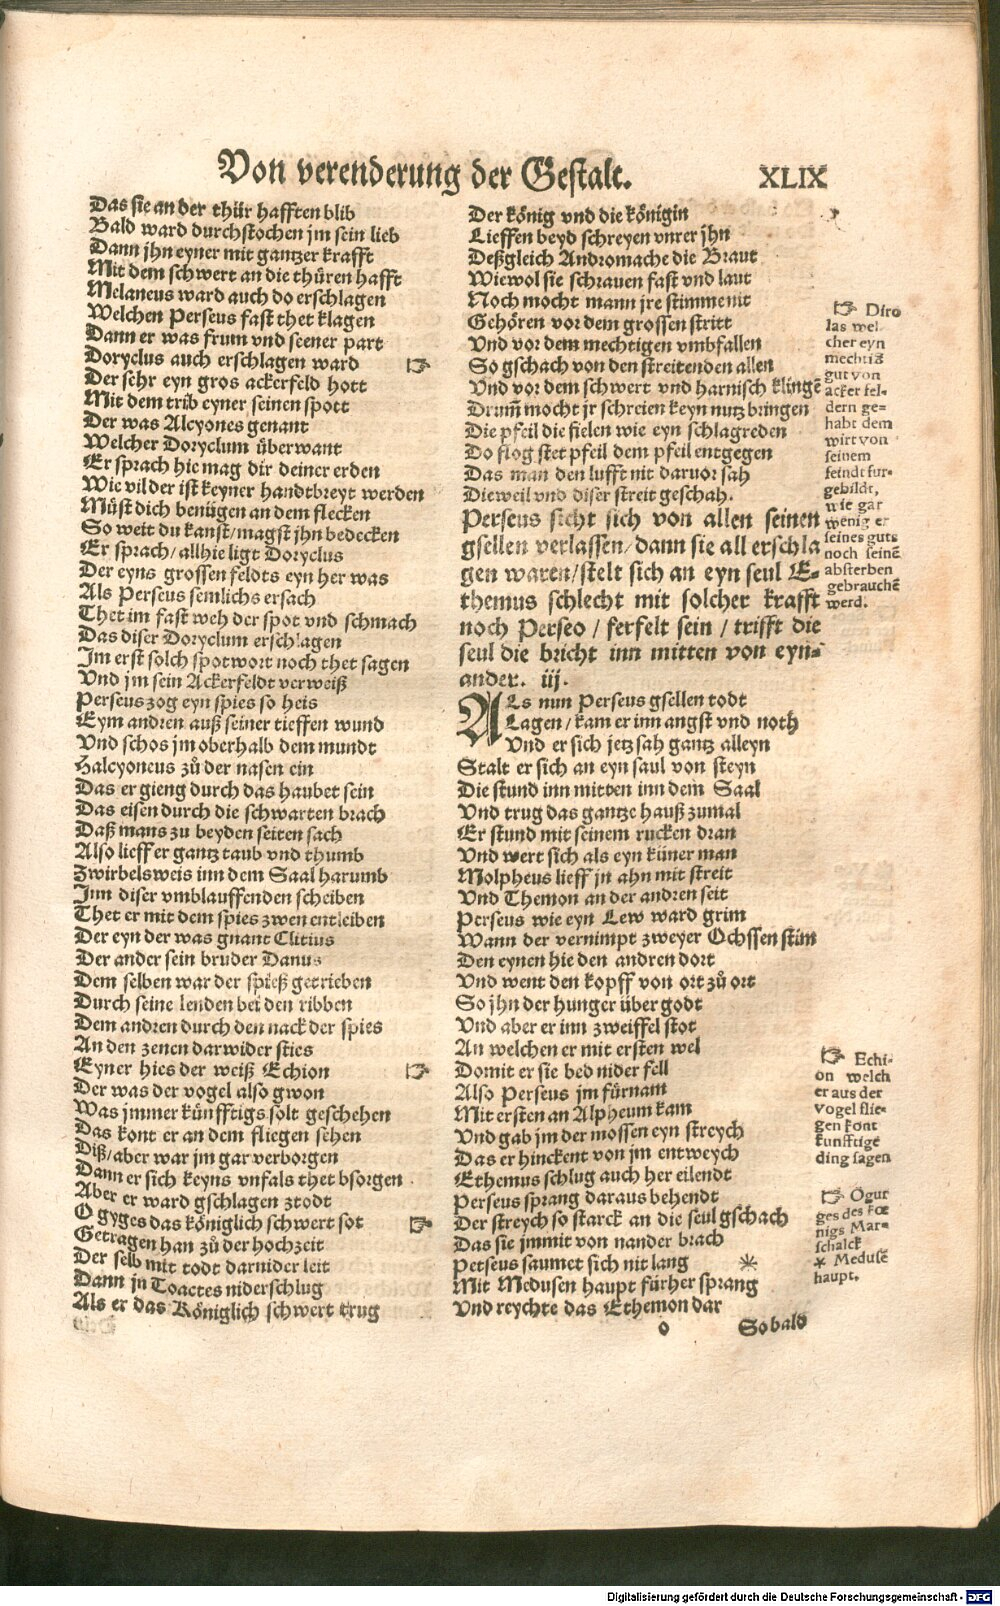 Von verenderung der Gestalt. XLIX
Das sie an der thür hafften blib
Bald ward durchstochen jm sein lieb
Dann jhn eyner mit gantzer krafft
Mit dem schwert an die thüren hafft
Melaneus ward auch do erschlagen
Welchen Perseus fast thet klagen
Dann er was frum vnd seener part
Doryclus auch erschlagen ward ☞
Der sehr eyn gros ackerfeld hott
Mit dem trib eyner seinen spott
Der was Alcyones genant
Welcher Doryclum überwant
Er sprach hie mag dir deiner erden
Wie vil der ist keyner handtbreyt werden
Müst dich benügen an dem flecken
So weit du kanst/magst jhn bedecken
Er sprach/allhie ligt Doryclus
Der eyns grossen feldts eyn her was
Als Perseus semlichs ersach
Thet im fast weh der spot vnd schmach
Das diser Doryclum erschlagen
Jm erst solch spotwort noch thet sagen
Vnd jm sein Ackerfeldt verweiß
Perseus zog eyn spies so heis
Eym andren auß seiner tieffen wund
Vnd schos jm oberhalb dem mundt
Halcyoneus zů der nasen ein
Das er gieng durch das haubet sein
Das eisen durch die schwarten brach
Daß mans zu beyden seiten sach
Also lieff er gantz taub vnd thumb
Zwirbelsweis inn dem Saal harumb
Jnn diser vmblauffenden scheiben
Thet er mit dem spies zwen entleiben
Der eyn der was gnant Clitius
Der ander sein bruder Danus
Dem selben war der spieß getrieben
Durch seine lenden bei den ribben
Dem andren durch den nack der spies
An den zenen darwider sties
Eyner hies der weiß Echion ☞
Der was der vogel also gwon
Was jmmer künfftigs solt geschehen
Das kont er an dem fliegen sehen
Diß/aber war jm gar verborgen
Dann er sich keyns vnfals thet bsorgen
Aber er ward gschlagen ztodt
O gyges das königlich schwert sot ☞
Getragen han zů der hochzeit
Der selb mit todt darnider leit
Dann jn Toactes niderschlug
Als er das Königlich schwert trug
Der könig vnd die königin
Lieffen beyd schreyen vnrer jhn
Deßgleich Andromache die Braut
Wiewol sie schrauen fast vnd laut
Noch mocht mann jre stimme nit
Gehören vor dem grossen stritt
Vnd vor dem mechtigen vmbfallen
So gschach von den streitenden allen
Vnd vor dem schwert vnd harnisch klingē
Drum̃ mocht jr schreien keyn nutz bringen
Die pfeil die fielen wie eyn schlagreden
Do flog stet pfeil dem pfeil entgegen
Das man den lufft nit daruor sah
Dieweil vnd diser streit geschah.
Perseus sicht sich von allen seinen
gsellen verlassen/dann sie all erschla
gen waren/stelt sich an eyn seul E-
themus schlecht mit solcher krafft
noch Perseo / ferfelt sein / trifft die
seul die bricht inn mitten von eyn-
ander. iij.
ALs nun Perseus gsellen todt
Lagen/kam er inn angst vnd noth
Vnd er sich jetz sah gantz alleyn
Stalt er sich an eyn saul von steyn
Die stund inn mitten inn dem Saal
Vnd trug das gantze hauß zumal
Er stund mit seinem rucken dran
Vnd wert sich als eyn küner man
Molpheus lieff jn ahn mit streit
Vnd Themon an der andren seit
Perseus wie eyn Lew ward grim
Wann der vernimpt zweyer Ochssen stim
Den eynen hie den andren dort
Vnd went den kopff von ort zů ort
So jhn der hunger über godt
Vnd aber er inn zweiffel stot
An welchen er mit ersten wel
Domit er sie bed nider fell
Also Perseus jm fürnam
Mit ersten an Alpheum kam
Vnd gab jm der mossen eyn streych
Das er hinckent von jm entweych
Ethemus schlug auch her eilendt
Perseus sprang daraus behendt
Der streych so starck an die seul gschach
Das sie jmmit von nander brach
Petseus saumet sich nit lang *
Mit Medusen haupt fürher sprang
Vnd reychte das Ethemon dar
o Sobald
☞ Diro
las wel
cher eyn
mechtig
gut von
acker fel-
dern ge-
habt dem
wirt von
seinem
feindt fur-
gebildt,
wie gar
wenig er
seines guts
noch seinē
absterben
gebrauchē
werd.
☞ Echi-
on welch
er aus der
vogel flie-
gen kont
kunfftige
ding sagen
☞ Ogur
ges des koe
nigs Mar-
schalck
* Medusē
haupt.
Digitalisierung gefördert durch die Deutsche Forschungsgemeinschaft - DFG